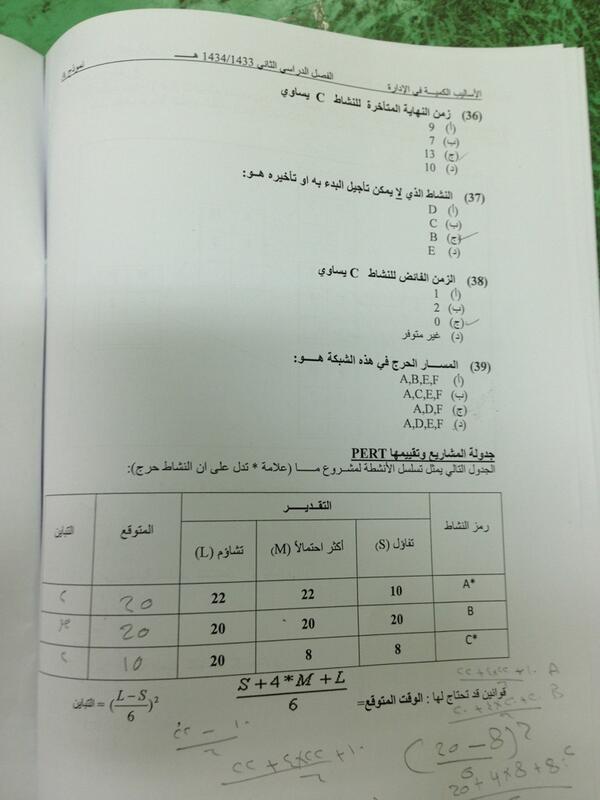 الأساليب الكمية في الإدارة الفصل الدراسي الثاني 1434/1433 هـ نموذج
(36) زمن النهاية المتأخرة للنشاط C يساوي
(أ) 9
(ب) 7
(ج) 13
(د) 10
(37) النشاط الذي لا يمكن تأجيل البدء به او تأخيره هو:
(أ) D
(ب) C
(ج) B
(د) E
(38) الزمن الفائض للنشاط C يساوي
(أ) 1
(ب) 2
(ج) 0
(د) غير متوفر
(39) المسار الحرج في هذه الشبكة هو:
(أ) A,B,E,F
(ب) A,C,E,F
(ج) A,D,F
(د) A,D,E,F
جدولة المشاريع وتقييمها PERT
الجدول التالي يمثل تسلسل الأنشطة لمشروع ما (علامة * تدل على ان النشاط حرج):
رمز النشاط التقدير المتوقع التباين
تفاؤل (S) أكثر احتمالاً (M) تشاؤم (L)
A* 10 22 22 20 ٤
B 20 20 20 20
C* 8 8 20 10 ٤
قوانين قد تحتاج لها : الوقت المتوقع= S+4*M+L / 6 التباين = (L-S / 6)2
A
B
(20-8 / 6)2
20+4×8+8